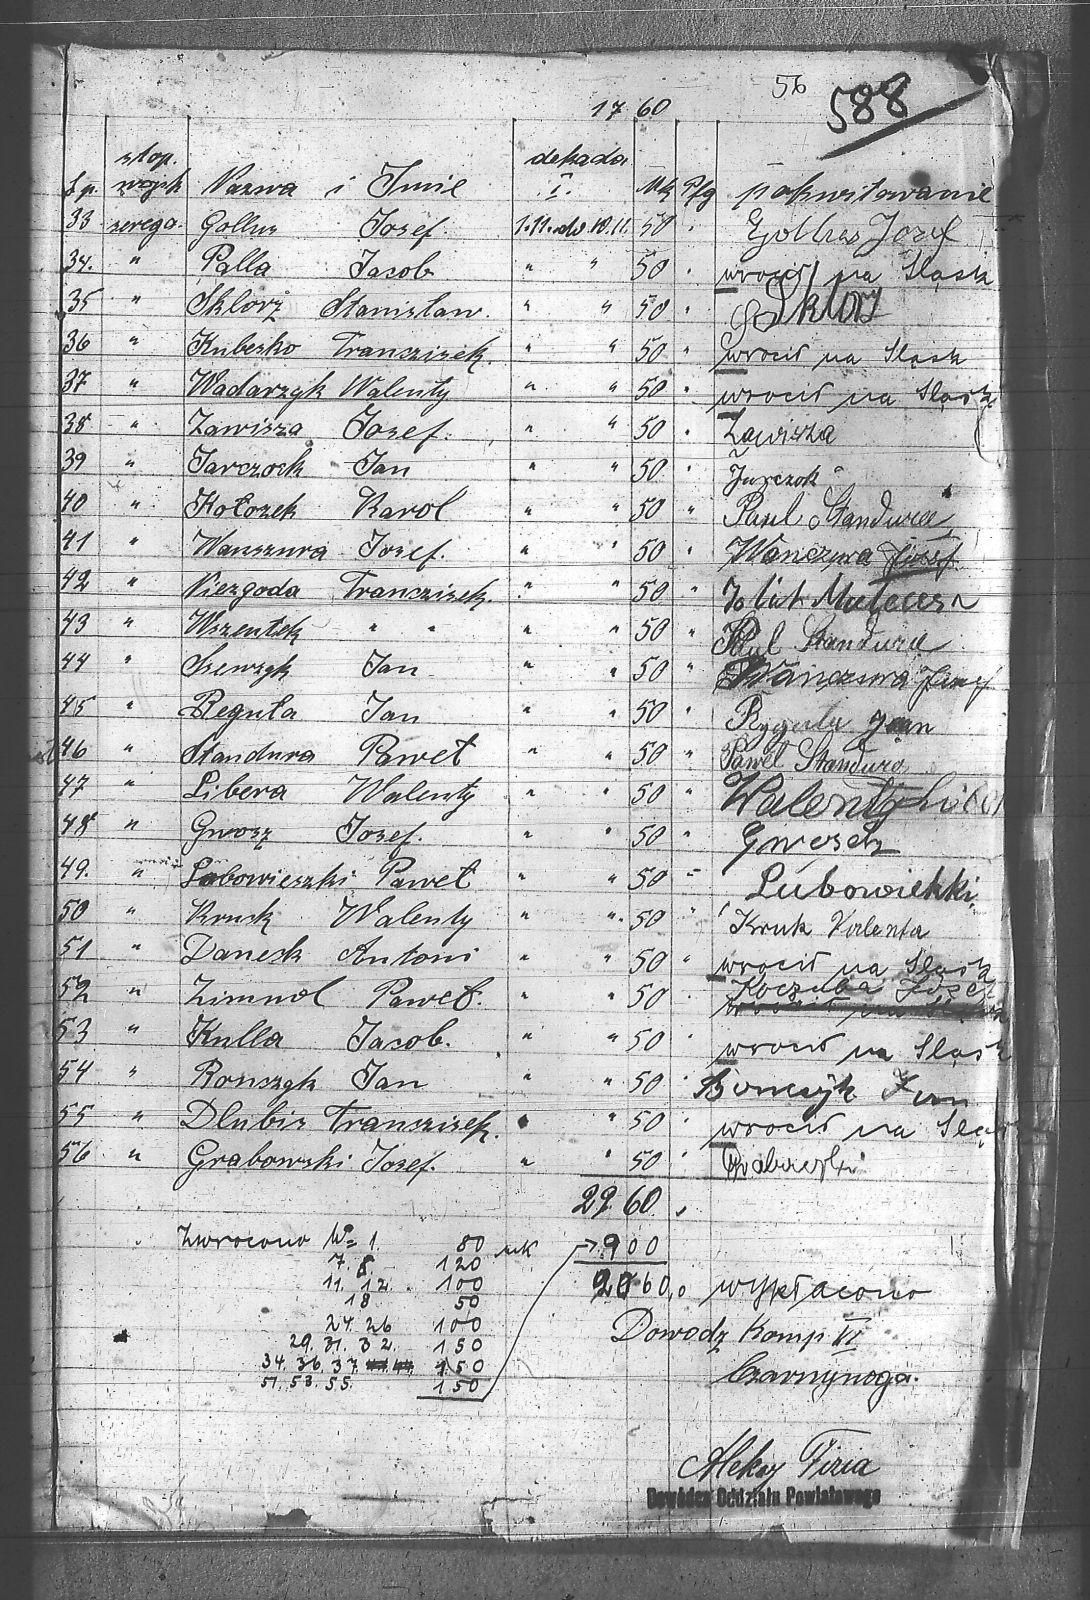 56
588
17 60
Lp. stop. wojsk Nazwa i Imie dekada I. Mk Pfg pokwitowanie
33 szereg. Gollus Josef 1.11. do 10.11. 50 " Gollus Jozef
34. " Palla Jacob " " 50 " wrocił na Śląsk
35 " Sklorz Stanisław " " 50 " Sklorz
36 " Kubesko Franciszek. " " 50 " wrocił na Slask
37 " Wadarzyk Walenty " " 50 " wrocił na Sląsk
38 " Zawisza Josef. " " 50 " Zawisza
39 " Jarczock Jan " " 50 " Jarczok
40 " Kołozek Karol " " 50 " Paul Standura
41 " Wanszura Josef. " " 50 " Wanczura Jozef
42 " Niezgoda Franciszek. " " 50 "
43 " Wszentek " " " " 50 " Paul Standura
44 " Szewzyk Jan " " 50 " Wanczura Jozef
45 " Reguła Jan " " 50 " Ryguła Jan
46 " Standura Paweł " " 50 " Paweł Standura
47 " Libera Walenty " " 50 " Walenty Liber
48 " Gwosz Josef. " " 50 " Gwosch
49. " Lubowieszki Paweł " " 50 " Lubowiekki
50 " Kruck Walenty " " 50 " Kruk Valenta
51 " Danesk Antoni " " 50 " wrocił na Sląsk
52 " Zimnol Paweł. " " 50 " Koczuba Jozef
wrocił na Sląsk
53 " Kulla Jacob. " " 50 " wrocił na Sląsk
54 " Ronszyk Jan " " 50 " Ronczyk Jan
55 " Dlubis Franciszek. " " 50 " wrocił na Sląsk
56 " Grabowski Josef. " " 50 " Grabowski
2960.
Zwrocono No 1. 80 mk → 900
7. 8. 120
11. 12. 100 2060,0 wypłacono
18 50
24. 26 100 Dowodz Komp VI
29. 31. 32. 150
34. 36. 37. 150 Czarnynoga.
51. 53. 55. 150
Aleksy Fizia
Dowódca Oddziału Powiatowego